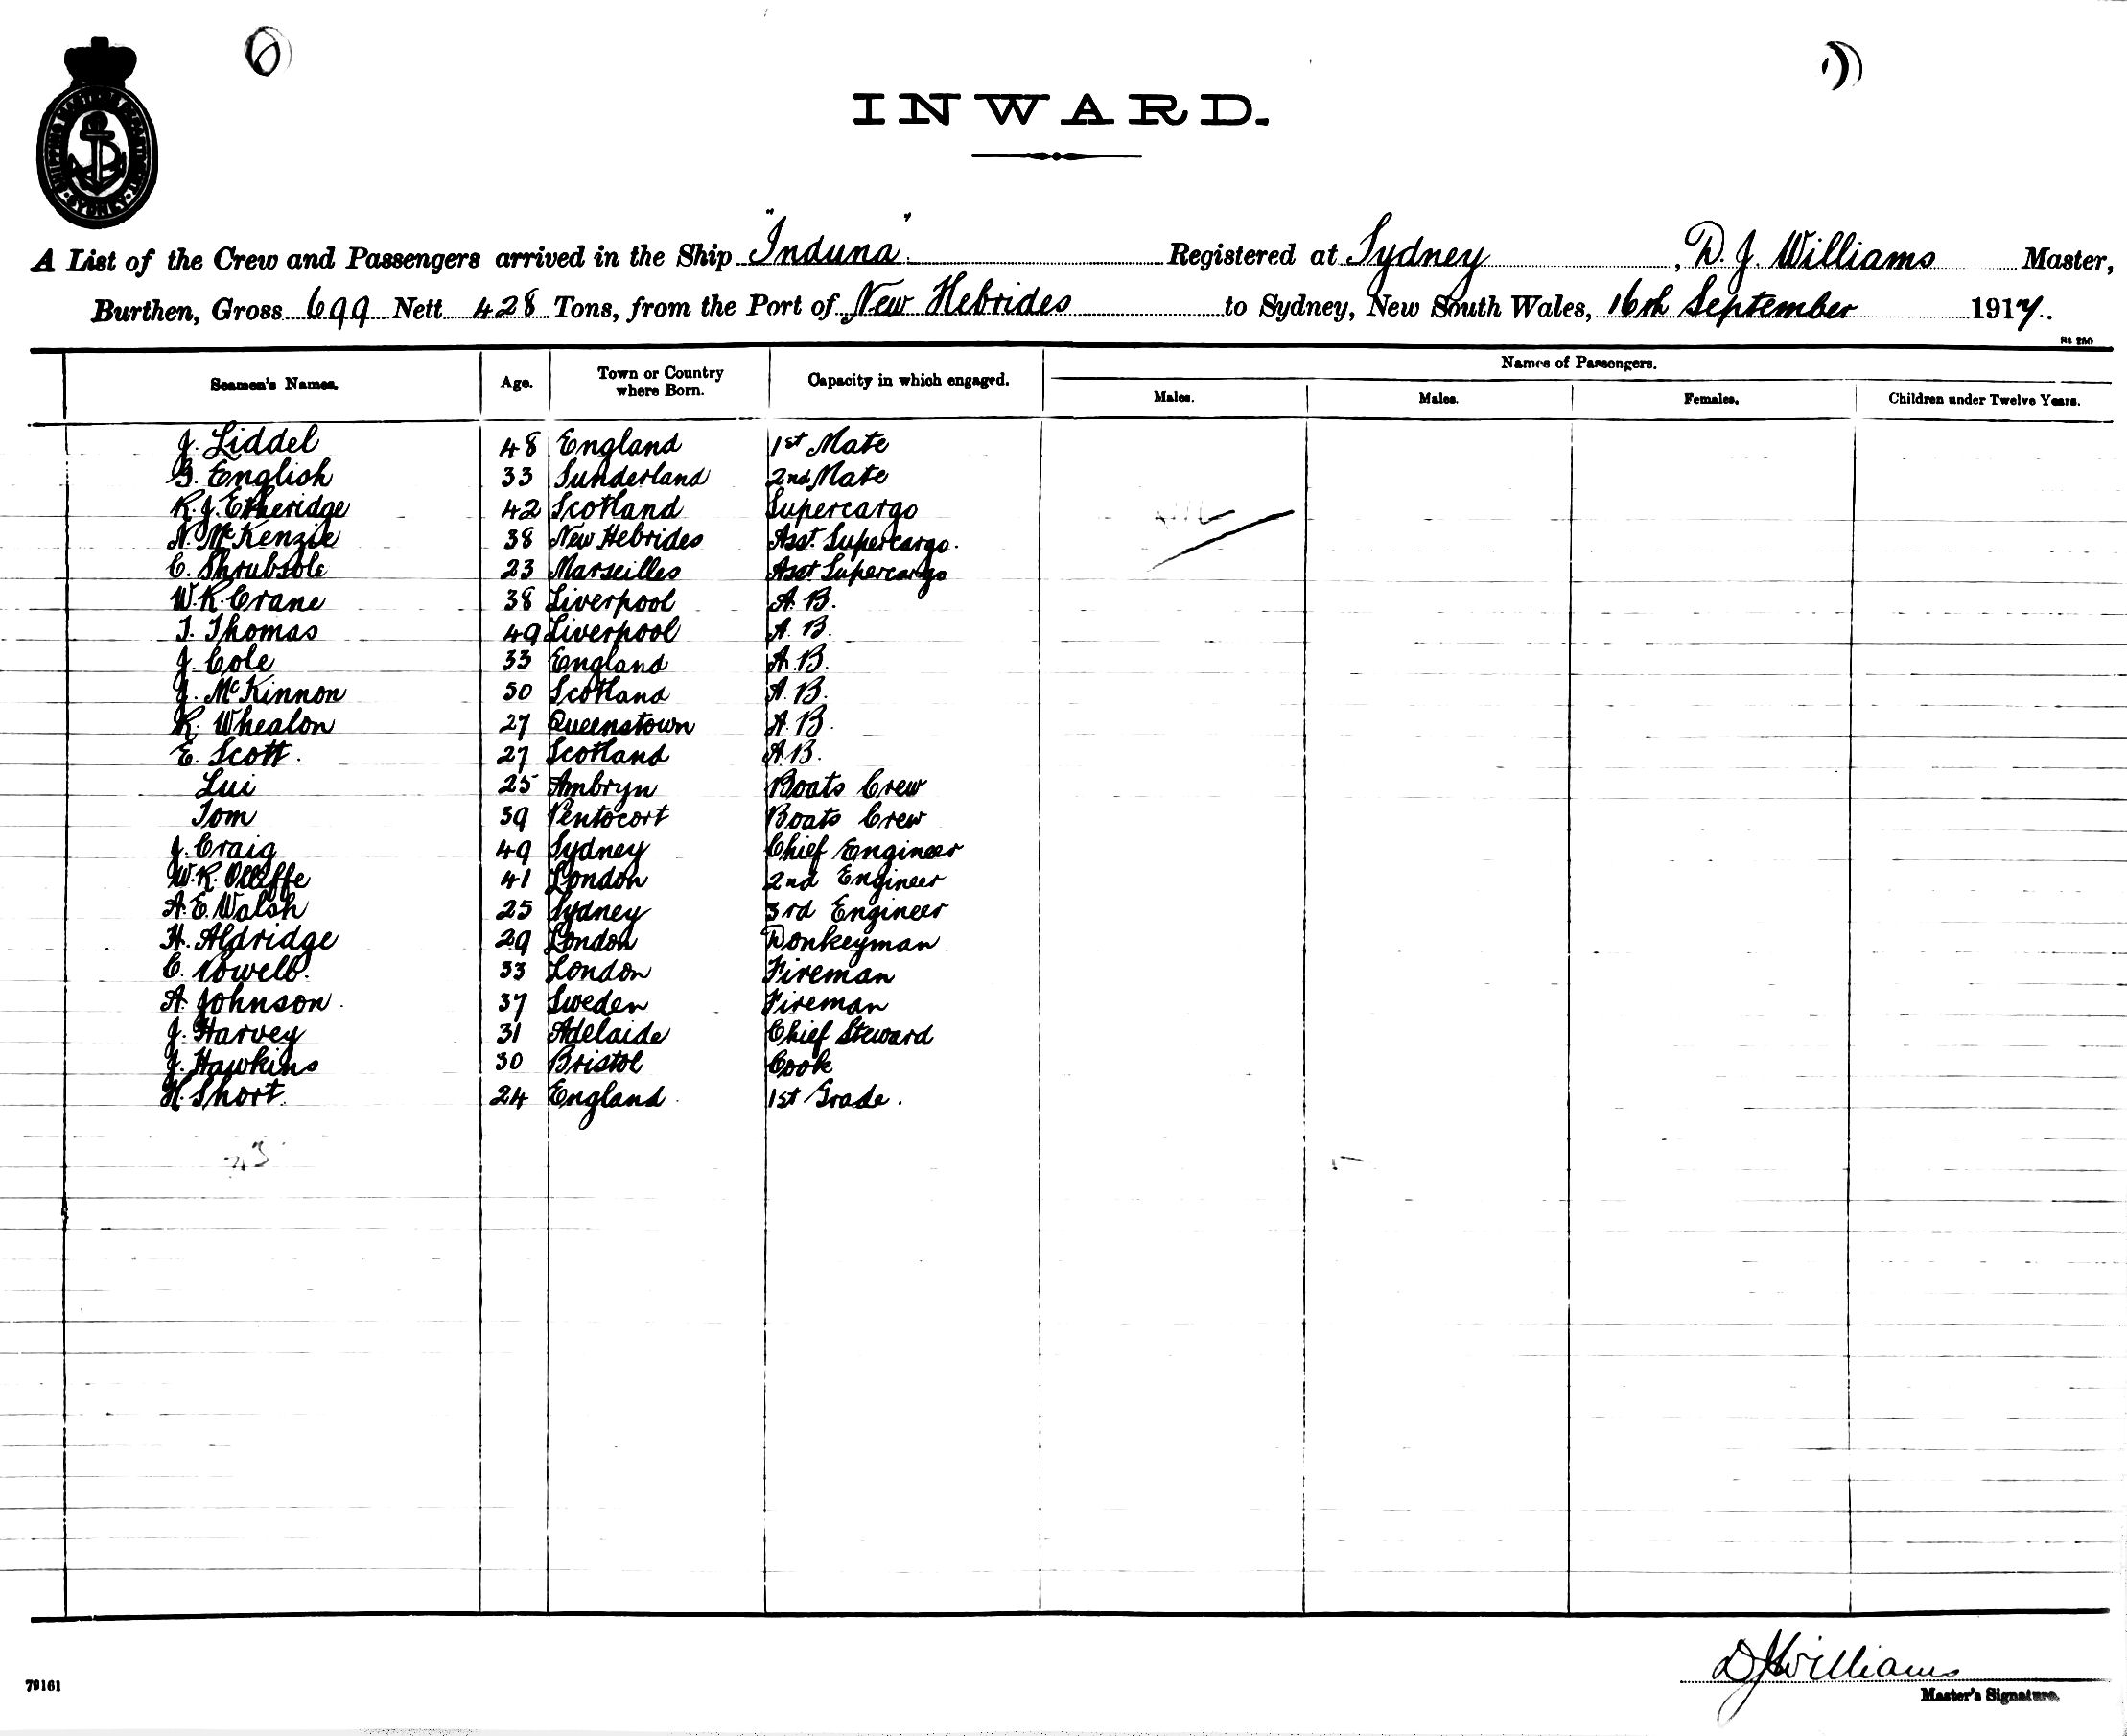 INWARD.
A List of the Crew and Passengers arrived in the Ship "Induna" Registered at Sydney, D. J. Williams Master,
Burthen, Gross 699 Nett 428 Tons, from the Port of New Hebrides to Sydney, New South Wales, 16th September 1917.
Seamen's Names. Age. Town or Country where Born. Capacity in which engaged. Names of Passengers.
Males. Males. Females. Children under Twelve Years.
J. Liddel 48 England 1st Mate
G. English 33 Sunderland 2nd Mate
R. J. Etheridge 42 Scotland Supercargo
N. McKenzie 38 New Hebrides Asst. Supercargo.
C. Shrubsole 23 Marseilles Asst Supercargo
W. R. Crane 38 Liverpool A. B.
T. Thomas 49 Liverpool A. B.
J. Cole 33 England A. B.
J. McKinnon 50 Scotland A. B.
R. Whealon 27 Queenstown A. B.
E. Scott. 27 Scotland A. B.
Lui 25 Ambryn Boats Crew
Tom 39 Pentocort Boats Crew
J. Craig 49 Sydney Chief Engineer
W. R. Olliffe 41 London 2nd Engineer
A. E. Walsh 25 Sydney 3rd Engineer
H. Aldridge 29 London Donkeyman
C. 33 London Fireman
A. Johnson. 37 Sweden Fireman
J. Harvey 31 Adelaide Chief Steward
J. Hawkins 30 Bristol Cook
H. Short. 24 England 1st Grade.
D J Williams
Master's Signature.
79161